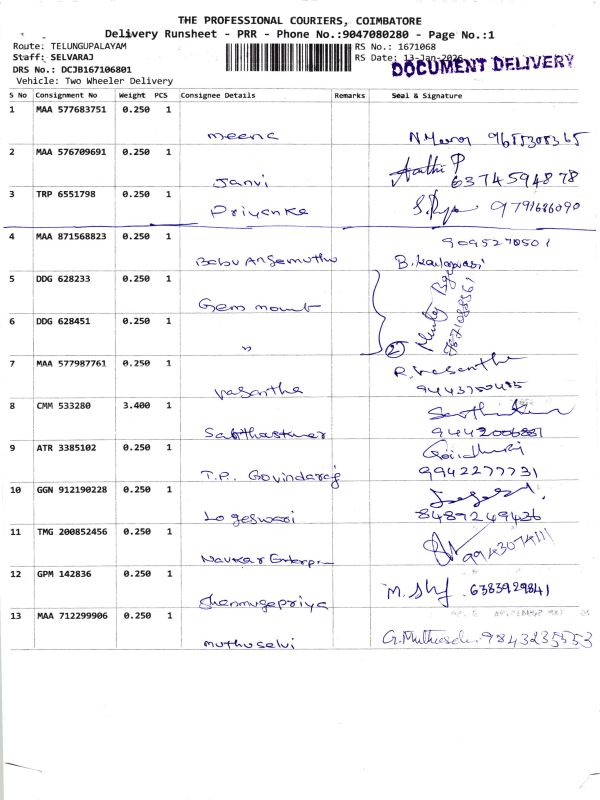 THE PROFESSIONAL COURIERS, COIMBATORE
Delivery Runsheet - PRR - Phone No.:9047080280 - Page No.:1
Route: TELUNGUPALAYAM
RS No.: 1671068
Staff: SELVARAJ
RS Date: 13-Jan-2026
DOCUMENT DELIVERY
DRS No.: DCJB167106801
Vehicle: Two Wheeler Delivery
S No Consignment No Weight PCS Consignee Details Remarks Seal & Signature
1 MAA 577683751 0.250 1
meena
2 MAA 576709691 0.250 1
Janvi Aarthi P
6374594878
3 TRP 6551798 0.250 1
Priyanka 9791686090
4 MAA 871568823 0.250 1
9095270501
Babu Angamuthu
5 DDG 628233 0.250 1
Gem mount
6 DDG 628451 0.250 1
" 2
7 MAA 577987761 0.250 1
Vasantha R. Vasantha
8 CMM 533280 3.400 1
9442006881
9 ATR 3385102 0.250 1
T.P. Govindaraj 9942277731
10 GGN 912190228 0.250 1
Logeswari 8489249436
11 TMG 200852456 0.250 1
Navkar
12 GPM 142836 0.250 1
Shanmugapriya 6383929841
13 MAA 712299906 0.250 1
muthuselvi 9843235553